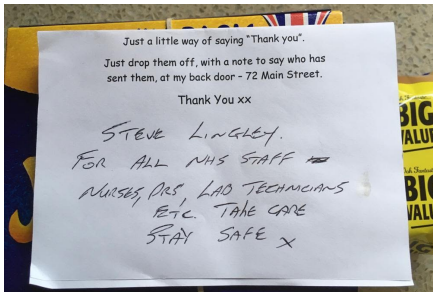 Just a little way of saying "Thank you".
Just drop them off, with a note to say who has
sent them, at my back door – 72 Main Street.
Thank You xx
STEVE LINGLEY.
FOR ALL NHS STAFF
NURSES, DRS, LAB TECHNICIANS
ETC TAKE CARE
STAY SAFE x
BIG
VALU
BIG
VALU